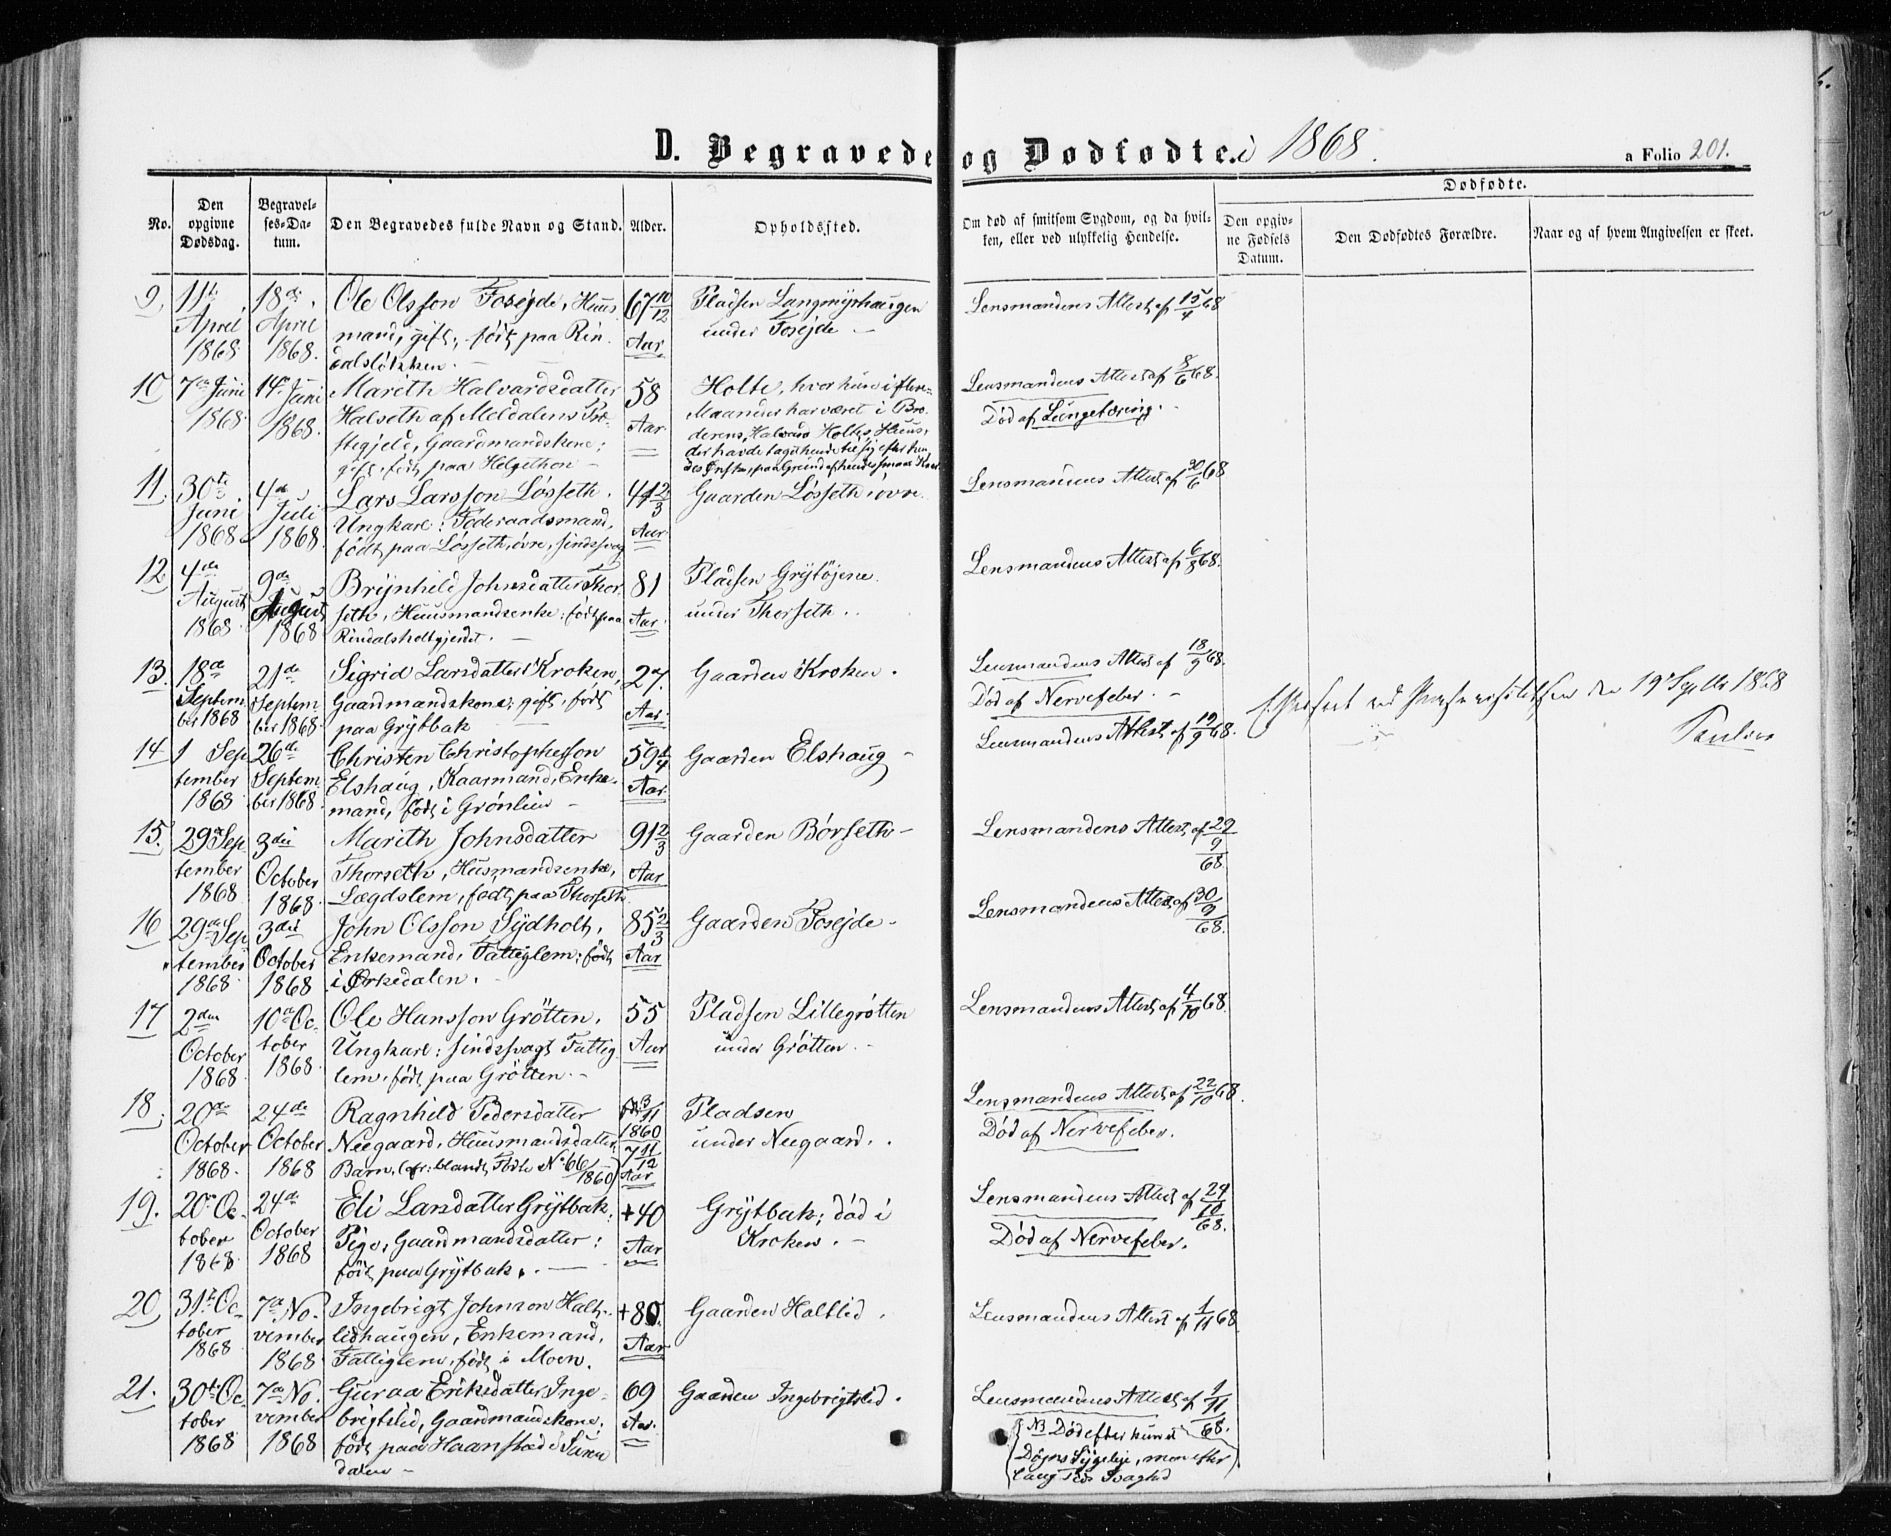 D. Begravede og Dødfødte. i 1868. a Folio 201.
No.
Den opgivne Dødsdag.
Begravelses-Datum.
Den Begravedes fulde Navn og Stand.
Alder.
Opholdssted.
Om død af smitsom Sygdom, og da hvilken, eller ved ulykkelig Hendelse.
Dødfødte.
Den opgivne Fødsels Datum.
Den Dødfødtes Forældre.
Naar og af hvem Angivelsen er skeet.
9, 11te April 1868 18de April 1868. Ole Olsson Fosejde, Huus-
mand, gift, født paa Rin-
dalsløkken. 67 10/12 Aar
Pladsen Langmyrhaugen
under Fosejde –
Lensmandens Attest af 15/4 68
10 7de Juni 1868 14de Juni 1868. Marith Halvardsdatter
Halseth af Meldalens Præ-
stegjeld, Gaardmandskone;
gift, født paa Helgethon – 58 Aar
Holte, hvor hun i flere
Maaneder har været i Bro-
derens, Halvard Holtes, Huus,
der havde taget hende til sig efter hen
des Ønske, paa Grund af hendes
Lensmandens Attest af 8/6 68.
Død af Lungetæring.
11. 30te Juni 1868 4de Juli 1868. Lars Larsson Løsseth,
Ungkarl; Føderaadsmand,
født paa Løsseth, øvre, sindssvag 41 2/3 Aar
Gaarden Løsseth, øvre.
Lensmandens Attest af 30/6 68
12 4de August 1868 9de August 1868 Brynhild Johnsdatter Thor-
seth, Huusmandsenke; født paa
Rindalsholtgjerdet. – 81 Aar
Pladsen Grytøjene
under Thorseth.
Lensmandens Attest af 6/8 68.
13. 18de September 1868 21de September 1868. Sigrid Larsdatter Kroken,
Gaardmandskone; gift, født
paa Grytbak 27. Aar.
Gaarden Kroken.
Lensmandens Attest af 18/9 68.
Død af Nervefeber. –
Efterseet ved 19 Septbr 1868
14. 1 September 1868 26de September 1868. Christen Christophersson
Elshaug, Kaarmand, Enke-
mand, født i Grønlien – 59 Aar
Gaarden Elshaug –
Lensmandens Attest af 19/9 68.
15. 29de September 1868 3die October 1868. Marith Johnsdatter
Thorseth, Huusmandsenke,
Lægdslem, født paa Thorseth 91 2/3 Aar
Gaarden Børseth –
Lensmandens Attest af 29/9 68.
16 29de September 1868 3die October 1868 John Olsson Sydholt,
Enkemand, Fattiglem; født
i Ørkedalen. 85 2/3 Aar
Gaarden Fosejde –
Lensmandens Attest af 30/9 68.
17 2den October 1868 10de October 1868. Ole Hansson Grøtten,
Ungkarl; sindssvagt Fattig-
lem, født paa Grøtten. – 55 Aar
Pladsen Lillegrøtten
under Grøtten. –
Lensmandens Attest af 4/10 68.
18. 20de October 1868. 24de October 1868 Ragnhild Pedersdatter
Neegaard, Huusmandsdatter,
Barn, (cfr: blandt Fødte No 66/1860) 3/11 1860 7 11/12 Aar
Pladsen
under Neegaard.
Lensmandens Attest af 22/10 68.
Død af Nervefeber.
19. 20de October 1868 24de October 1868 Eli Larsdatter Grytbak,
Pige, Gaardmandsdatter;
født paa Grytbak. — +40 Aar
Grytbak; død i
Kroken. –
Lensmandens Attest af 24/10 68.
Død af Nervefeber.
20 31te October 1868 7de November 1868 Ingebrigt Johnson Halt-
lidhaugen, Enkemand,
Fattiglem, født i Moen. +80. Aar
Gaarden Haltlid.
Lensmandens Attest af 1/11 68.
21. 30te October 1868 7de November 1868 Guraa Eriksdatter Inge-
brigtslid, Gaardmandskone,
født paa Haanstad i Suren
dalen – 69 Aar.
Gaarden Ingebrigtslid.
Lensmandens Attest af 1/11 68.
NB Død efter kun
Døgns Sygeleje, men efter
lang Tids Svaghed